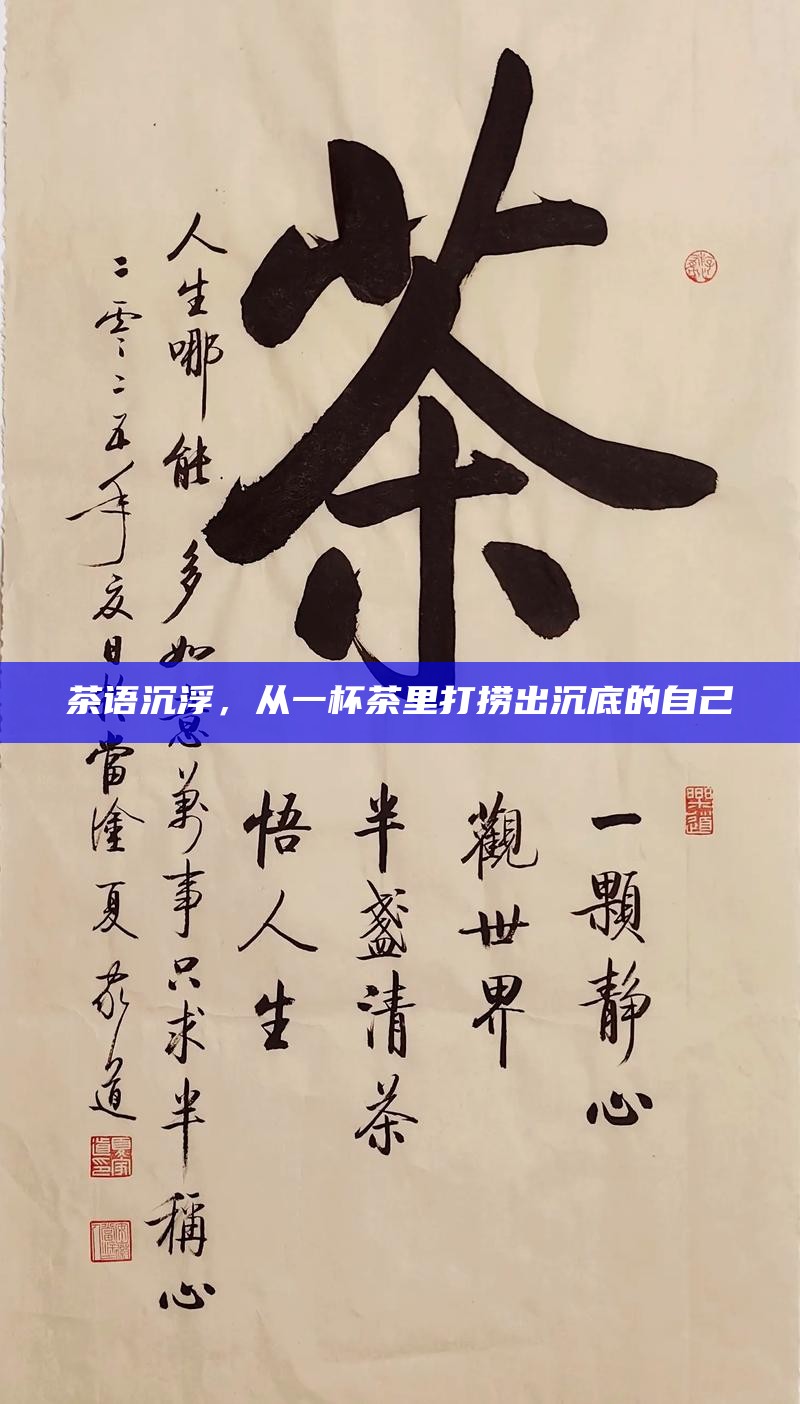 茶
茶语沉浮，从一杯茶里打捞出沉底的自己
一顆静心
觀世界
半盞清茶
悟人生
人生哪能多如意萬事只求半稱心
二零二五年夏日於當塗夏家道
樂道
夏家道印